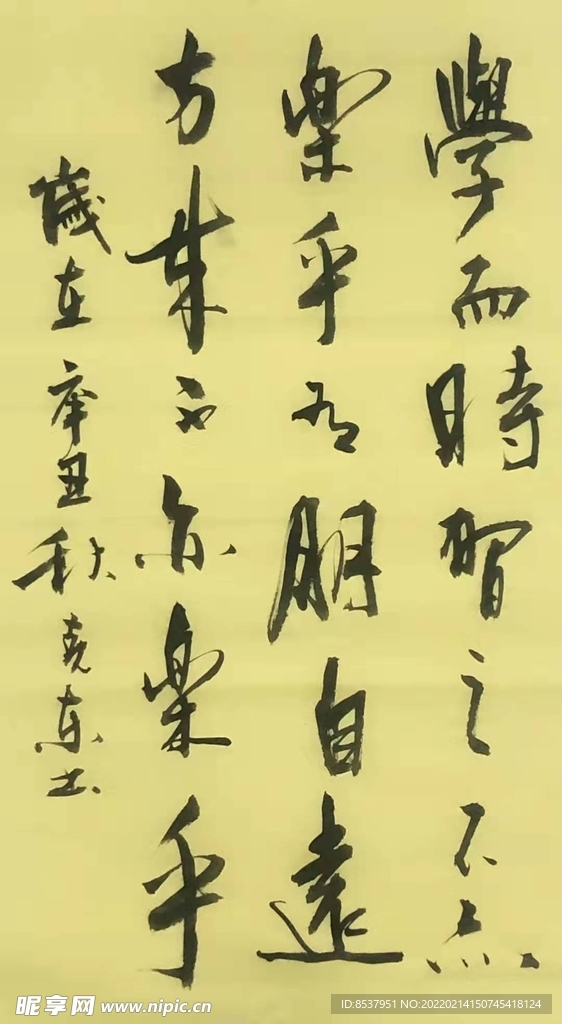 學而時習之不亦
樂乎有朋自遠
方來不亦樂乎
歲在辛丑秋堯东书
昵享网 www.nipic.cn
ID:8537951 NO:20220214150745418124